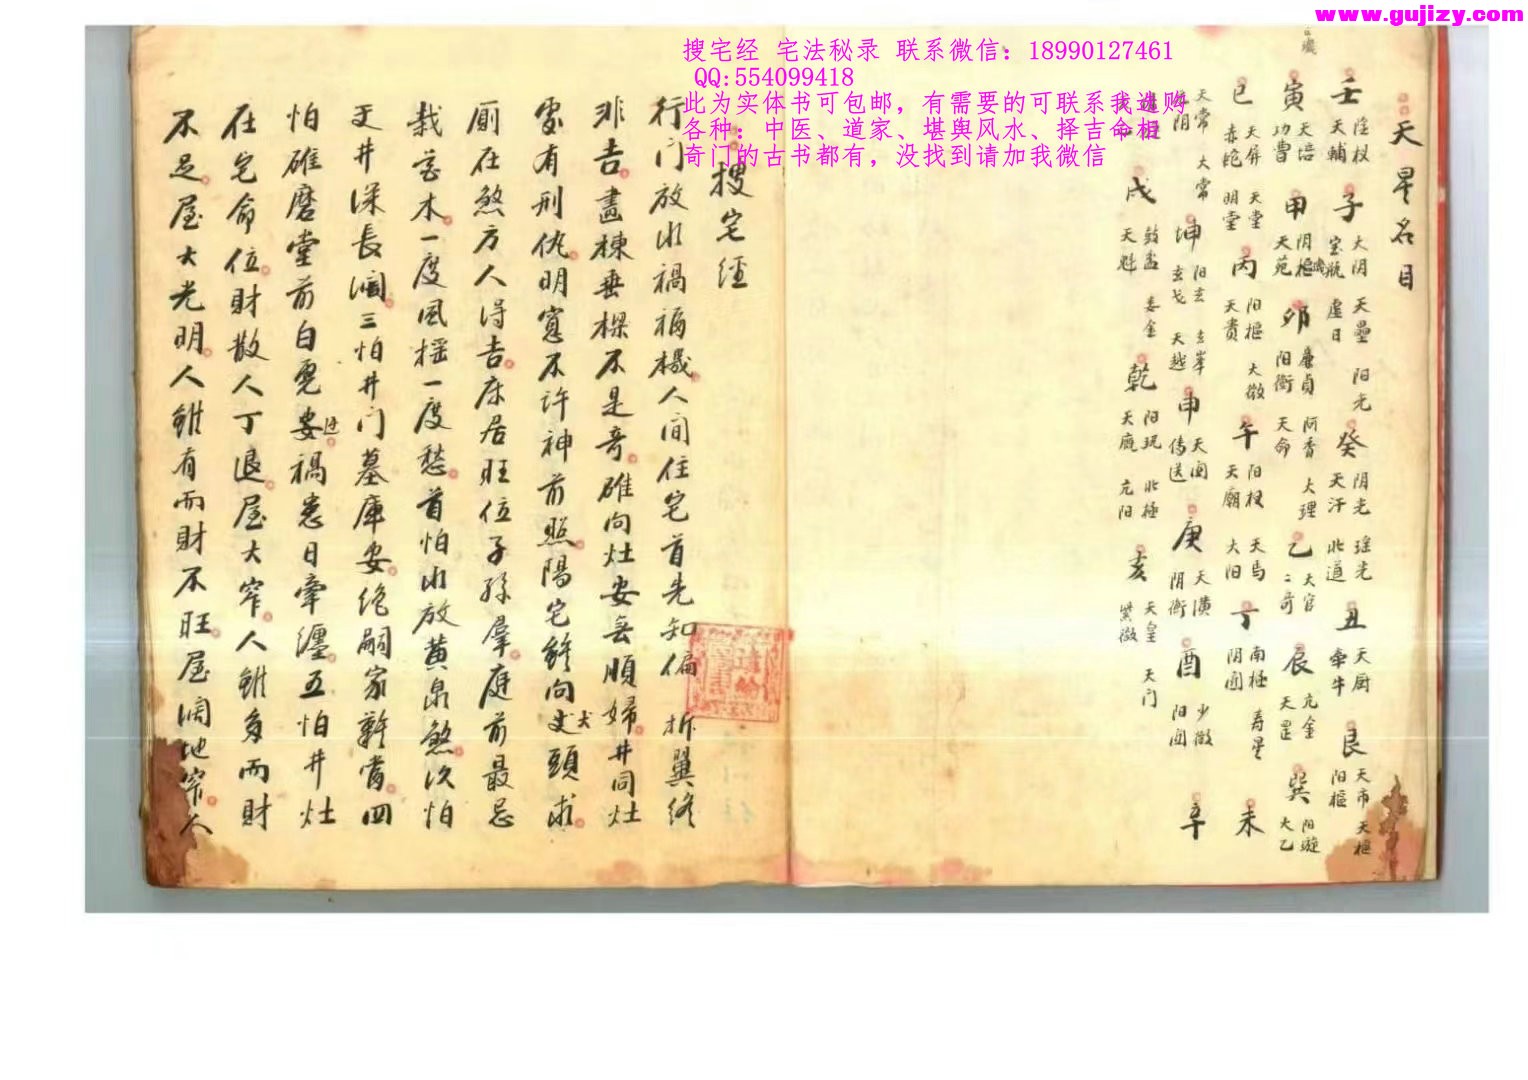 www.gujizy.com
搜宅经 宅法秘录 联系微信：18990127461
QQ:554099418
此为实体书可包邮，有需要的可联系我选购
各种：中医、道家、堪舆风水、择吉命相
奇门的古书都有，没找到请加我微信
天星名目
壬 陰权 天輔 子 大阴 宝瓶 天壘 虚日 阳光 癸 阴光 天汗 瑶光 北道 丑 天厨 牵牛 艮 天市 阳樞 天樞
寅 天培 功曹 甲 阴樞 天苑 卯 廉贞 阳衡 阿香 天命 大理 乙 天官 二奇 辰 亢金 天罡 巽 阳璇 太乙
巳 天屏 赤蛇 天堂 明堂 丙 阳樞 天贵 大微 午 阳权 天廟 天马 大阳 丁 南極 阴闿 寿星 未
天常 大常 坤 阳玄 玄戈 玄峯 天越 申 天闽 传送 庚 天潢 阴衡 酉 少微 阳闿 辛
戌 鼓盆 天魁 娄金 乾 阳玑 天廐 北極 亢阳 亥 天皇 紫微 天门
搜宅經
行门放水禍福機人间住宅首先知偏 拆翼终
非吉畫棟垂樑不是奇碓向灶安妄順婦井同灶
處有刑仇明寬不许神前照陽宅雖向丈犬頭求
厠在煞方人得吉床居旺位子孫羣庭前最忌
栽苍木一度風摇一度愁首怕水放黄泉煞次怕
天井深長濶三怕井门墓庫安绝嗣家難當四
怕碓磨堂前白虎安禍患日牵纏五怕井灶
在宅命位財散人丁退屋大窄人雖多而財
不足屋大光明人雖有而財不旺屋濶地窄人